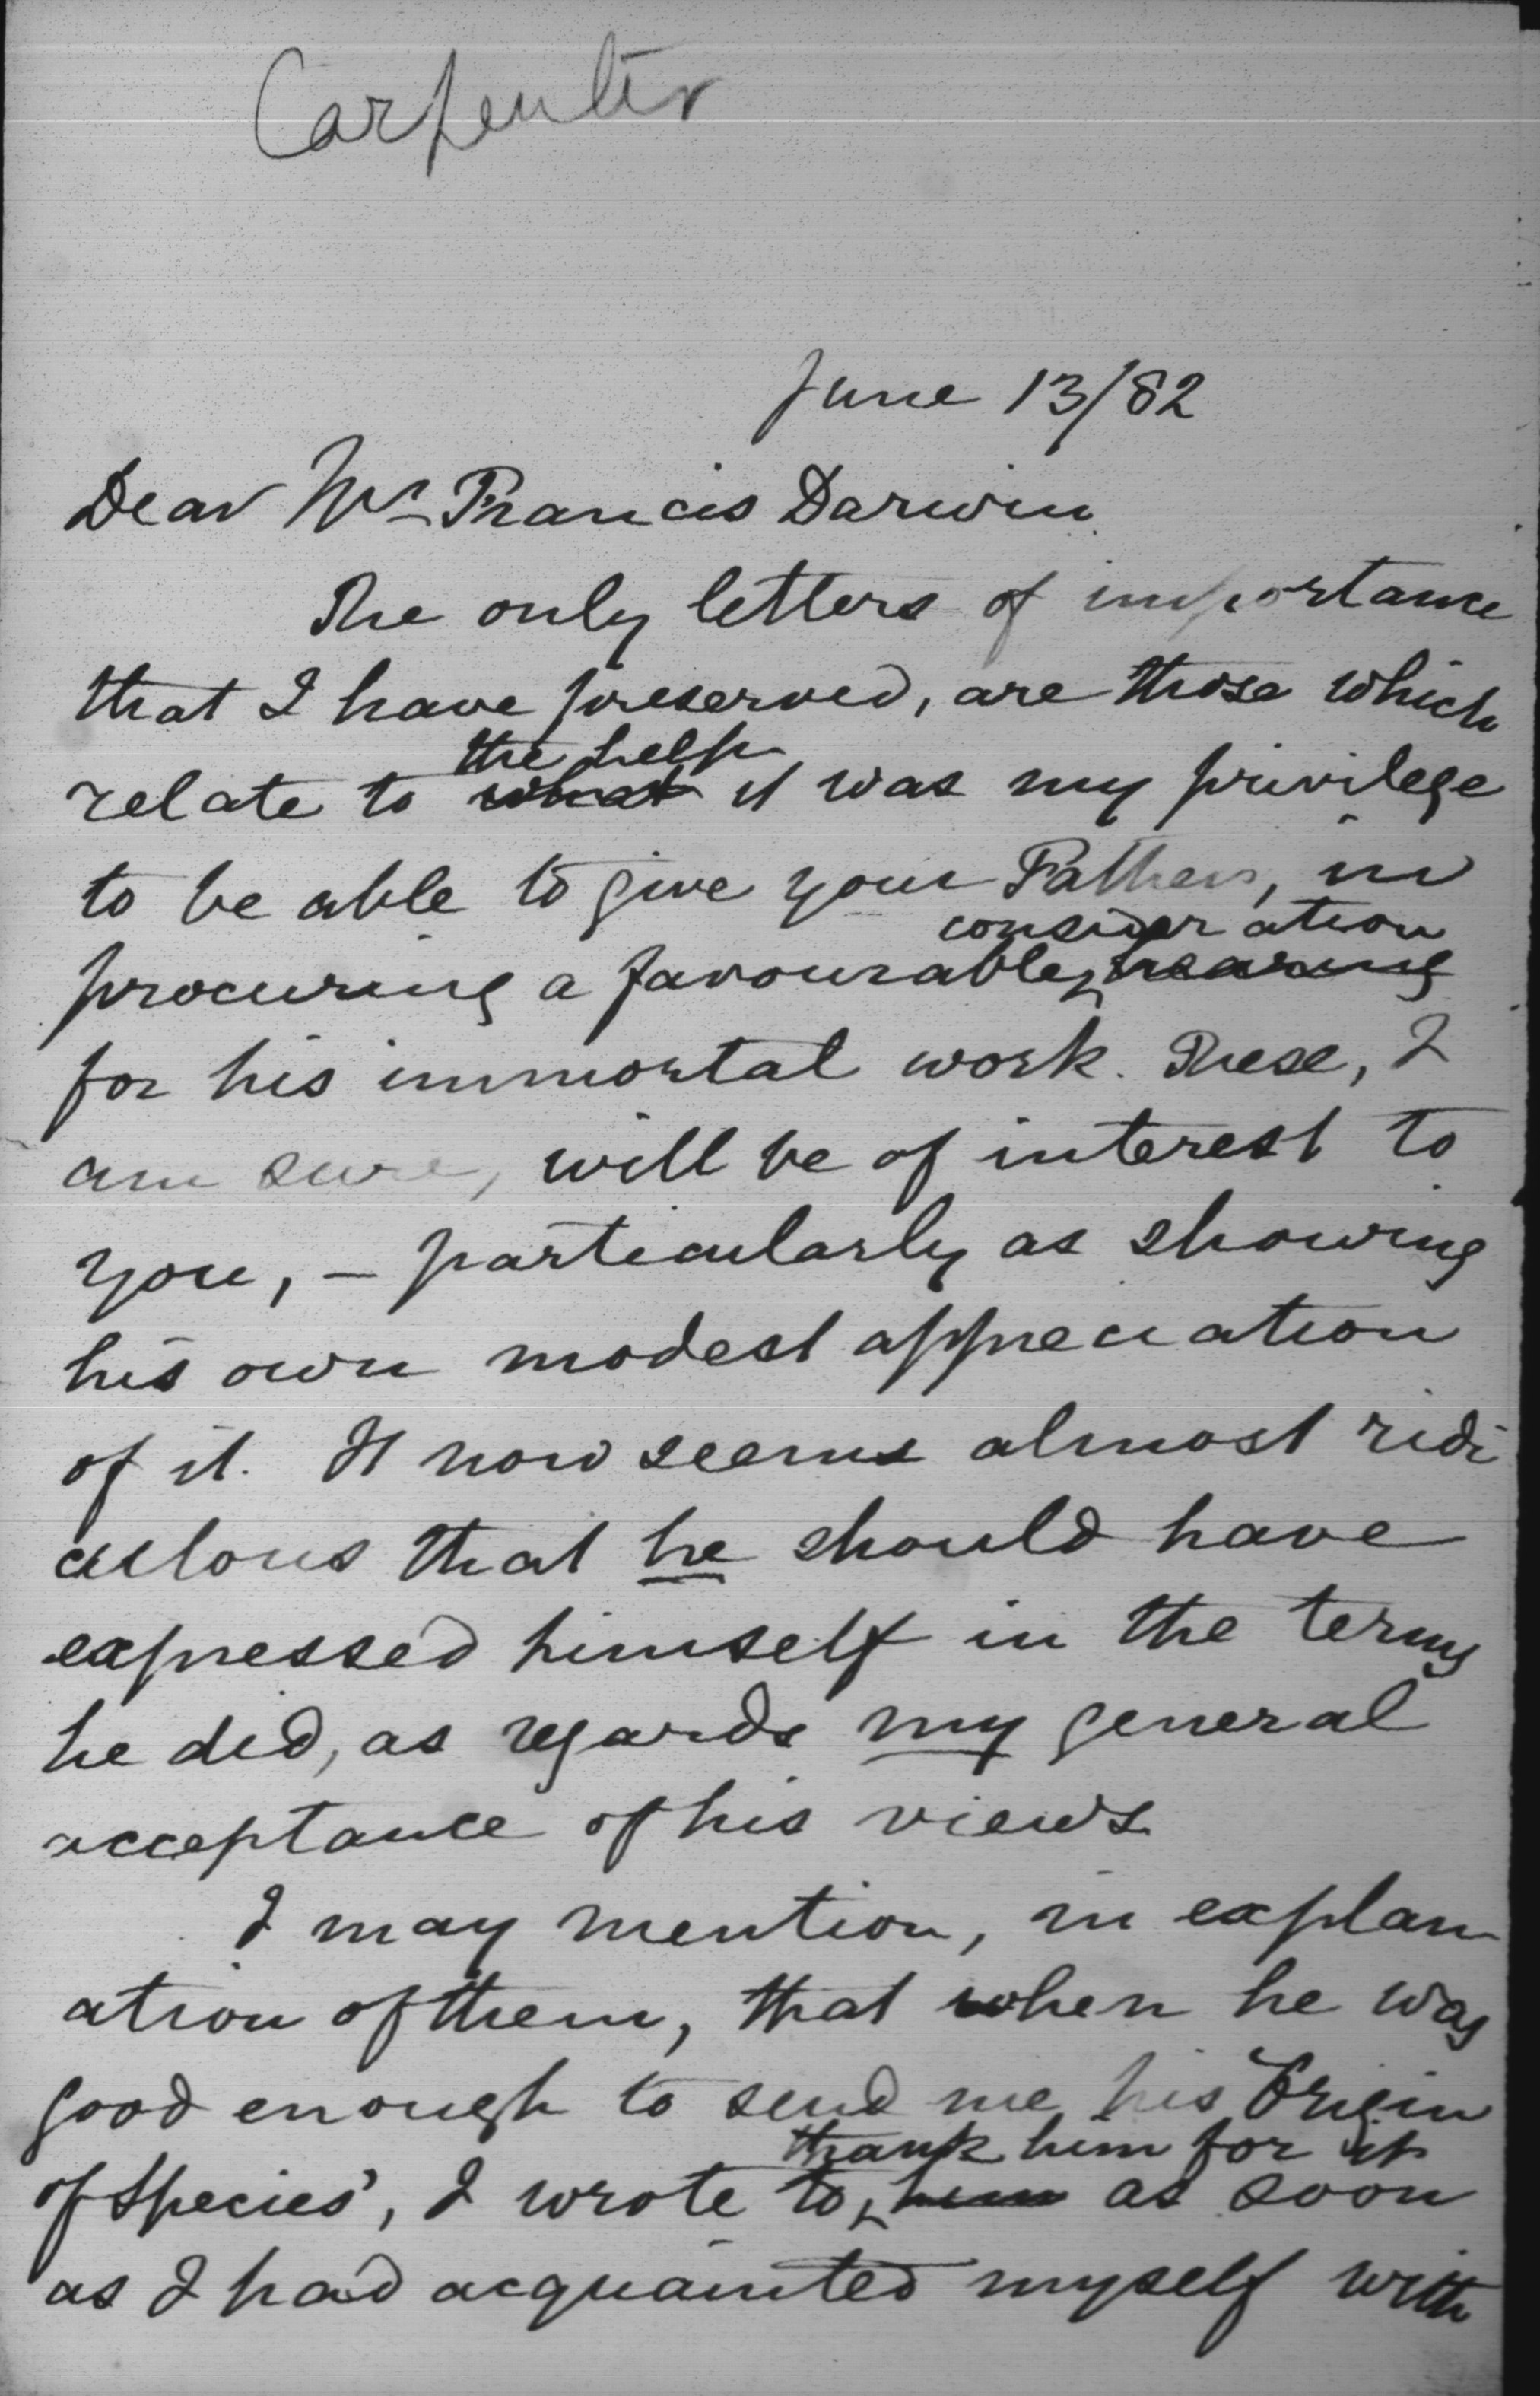 Carpenter
June 13/82
Dear Mr Francis Darwin
The only letters of importance
that I have preserved, are those which
the help
relate to what it was my privilege
to be able to give your Father, in
consideration
procuring a favourable hearing
for his immortal work. These, I
am sure, will be of interest to
you, – particularly as showing
his own modest appreciation
of it. It now seems almost ridi
culous that he should have
expressed himself in the terms
he did, as regards my general
acceptance of his views.
I may mention, in explan
ation of them, that when he was
good enough to send me his 'Origin
thank him for it
of Species', I wrote to him as soon
as I had acquainted myself with